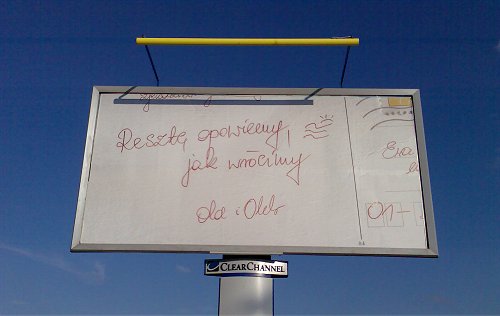 Resztę opowiemy,
jak wrócimy
Ola i Olek
Ewa
01-
CLEARCHANNEL